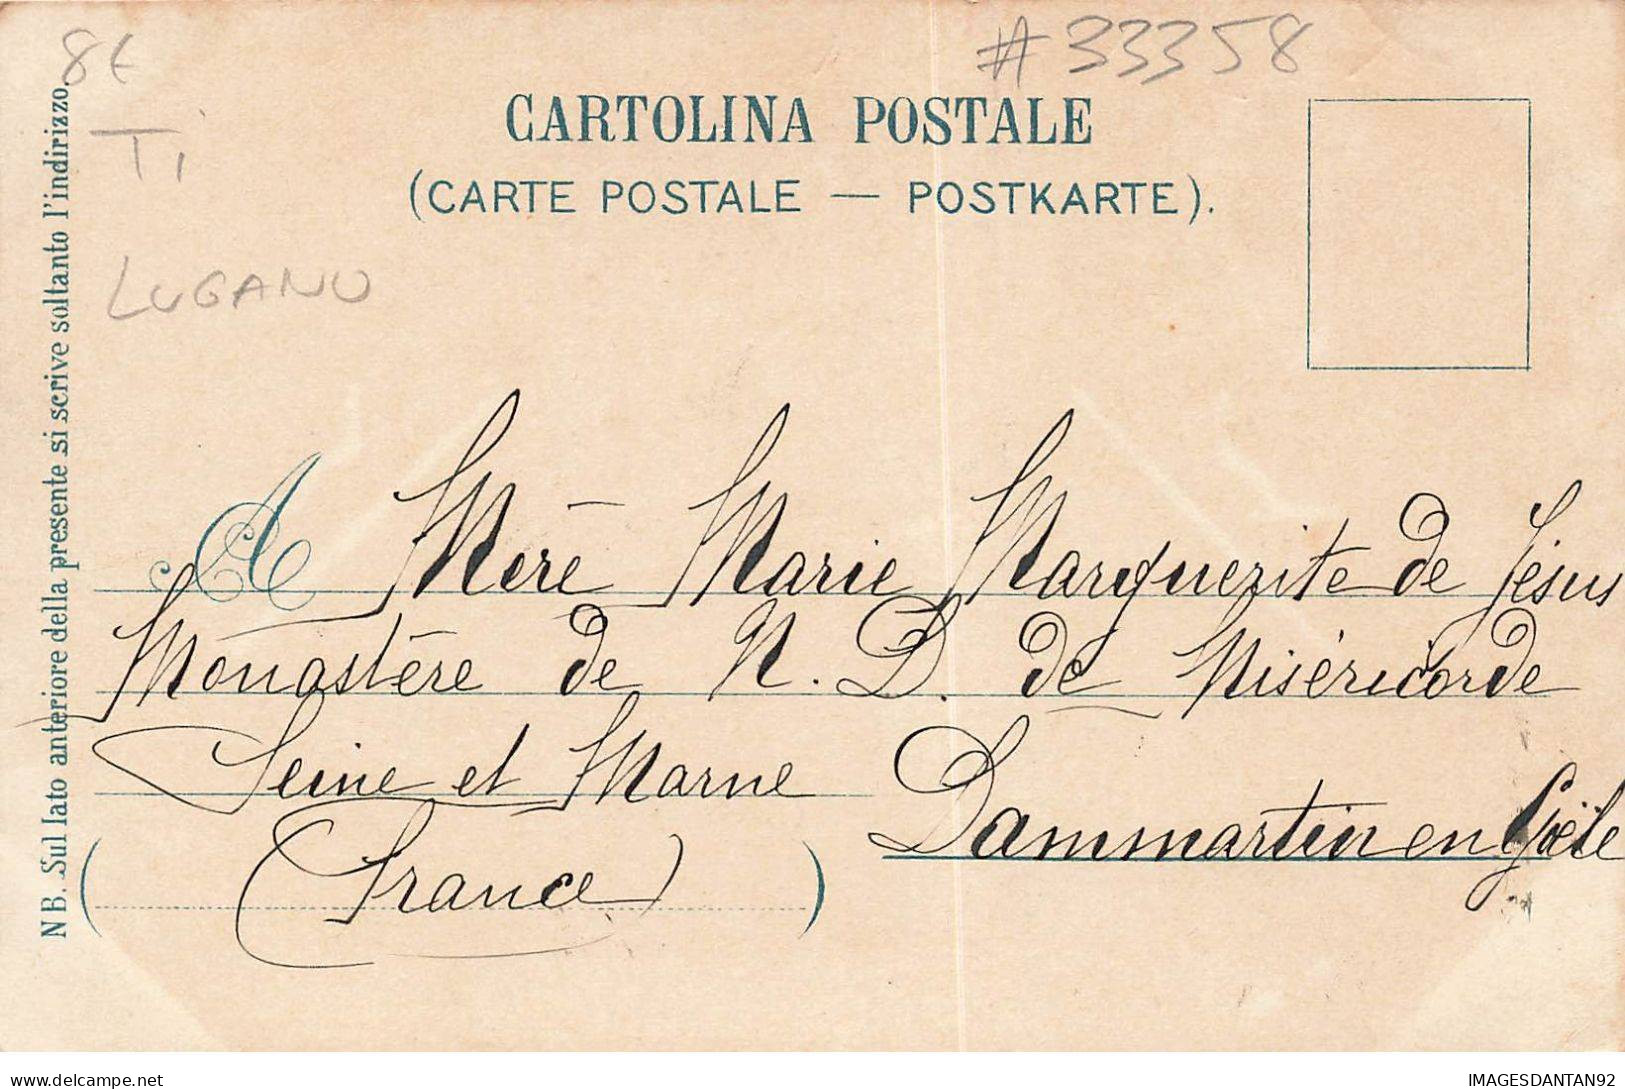 8€
#33358
CARTOLINA POSTALE
TI
(CARTE POSTALE — POSTKARTE).
LUGANO
NB. Sul lato anteriore della presente si scrive soltanto l'indirizzo.
A Mère Marie Marguerite de Jésus
Monastère de N. D. de Miséricorde
Seine et Marne Dammartin en Goële
(France)
delcampe.net
IMAGESDANTAN92